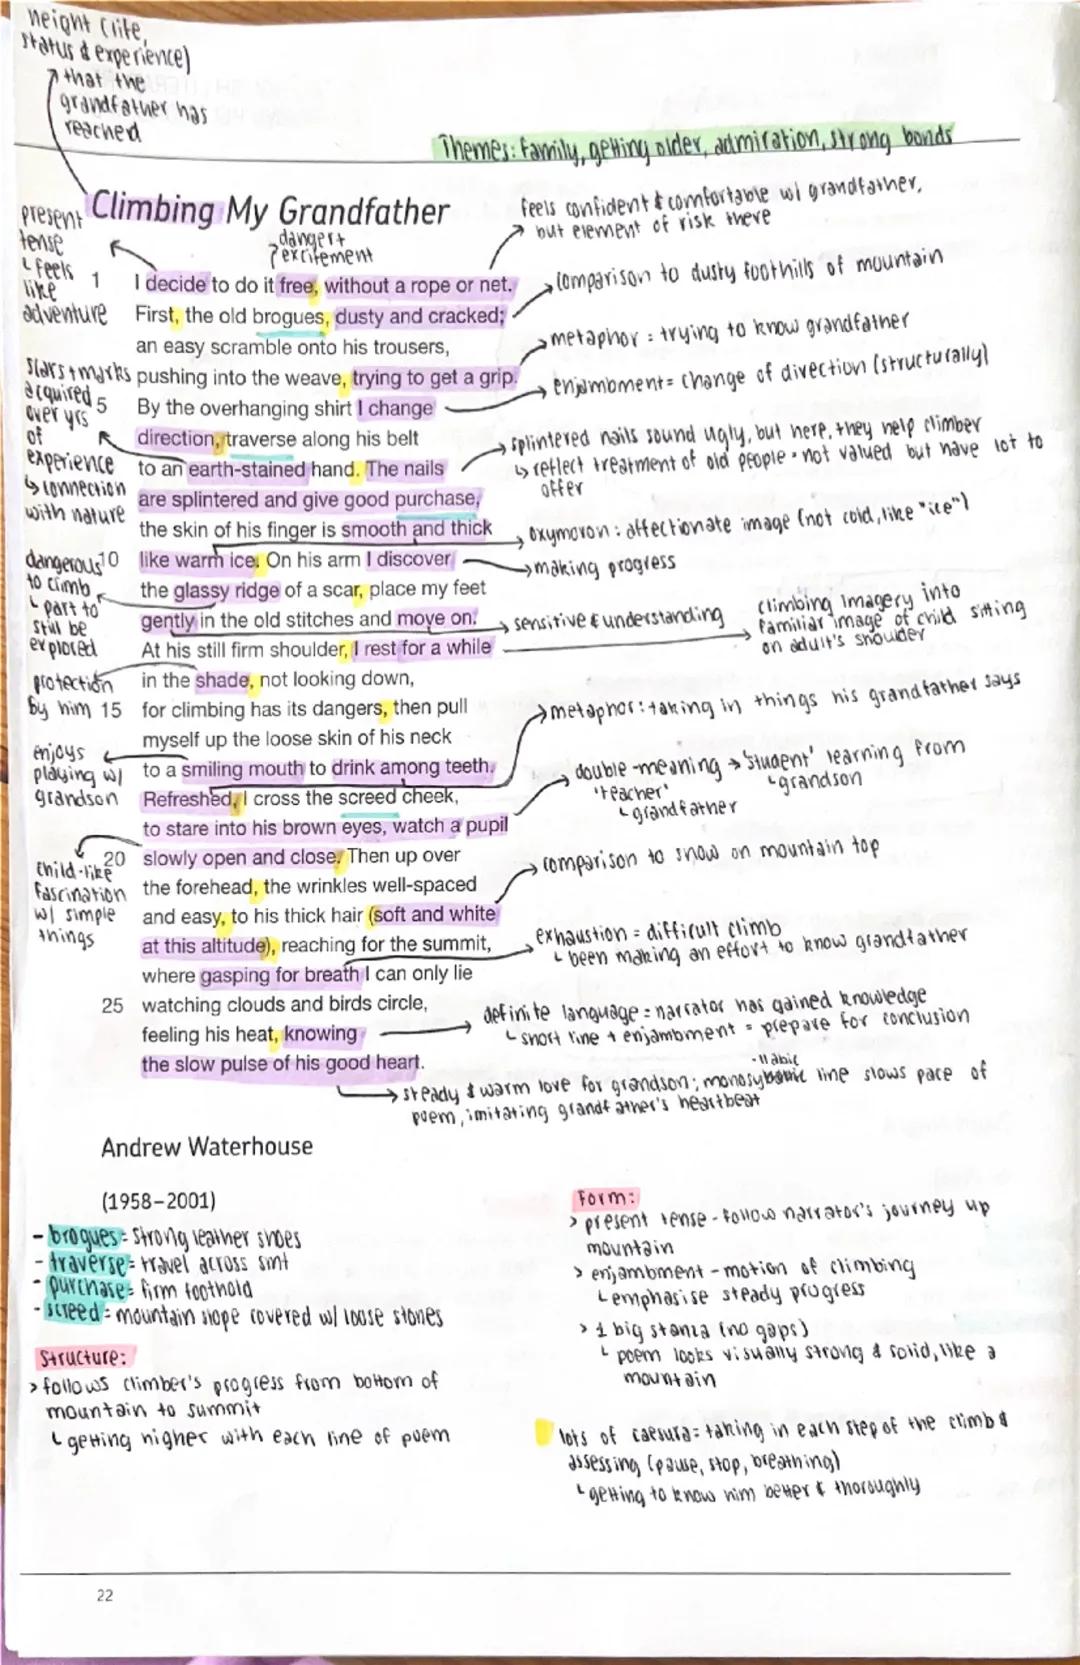 height (life,
status & experience)
that the
grandfather has
reached
Themes: family, getting older, admiration, strong bonds
Climbing My Grandfather
present
tense
feels
like
adventure
danger +
excitement
feels confident & comfortable w/ grandfather,
but element of risk there
1 I decide to do it free, without a rope or net.
comparison to dusty foothills of mountain
First, the old brogues, dusty and cracked;
an easy scramble onto his trousers,
metaphor = trying to know grandfather
pushing into the weave, trying to get a grip.
enjambment = change of direction (structurally)
scars + marks
acquired
over yrs
of
experience
connection
with nature
5 By the overhanging shirt I change
direction, traverse along his belt
to an earth-stained hand. The nails
splintered nails sound ugly, but here, they help climber
reflect treatment of old people - not valued but have lot to
offer
are splintered and give good purchase,
the skin of his finger is smooth and thick
oxymoron: affectionate image (not cold, like "ice")
10 like warm ice. On his arm I discover
making progress
dangerous
to climb
part to
still be
explored
the glassy ridge of a scar, place my feet
gently in the old stitches and move on.
sensitive & understanding
climbing imagery into
familiar image of child sitting
on adult's shoulder
At his still firm shoulder, I rest for a while
in the shade, not looking down,
protection
by him
15 for climbing has its dangers, then pull
metaphor: taking in things his grandfather says
myself up the loose skin of his neck
enjoys
playing w/
grandson
to a smiling mouth to drink among teeth.
double-meaning → 'student' learning from
'teacher' grandson
grandfather
Refreshed, I cross the screed cheek,
to stare into his brown eyes, watch a pupil
20 slowly open and close. Then up over
comparison to snow on mountain top
child-like
fascination
w/ simple
things
the forehead, the wrinkles well-spaced
and easy, to his thick hair (soft and white
at this altitude), reaching for the summit,
exhaustion = difficult climb
been making an effort to know grandfather
where gasping for breath I can only lie
25 watching clouds and birds circle,
feeling his heat, knowing
definite language = narrator has gained knowledge
short line + enjambment = prepare for conclusion
the slow pulse of his good heart.
-llabic
steady & warm love for grandson; monosyllabic line slows pace of
poem, imitating grandfather's heartbeat
Andrew Waterhouse
(1958–2001)
- brogues = strong leather shoes
- traverse = travel across smt
- purchase = firm foothold
- screed = mountain slope covered w/ loose stones
Structure:
> follows climber's progress from bottom of
mountain to summit
getting higher with each line of poem
Form:
> present tense - follow narrator's journey up
mountain
> enjambment - motion of climbing
emphasise steady progress
> 1 big stanza (no gaps)
poem looks visually strong & solid, like a
mountain
lots of caesura = taking in each step of the climb &
assessing (pause, stop, breathing)
getting to know him better & thoroughly
22